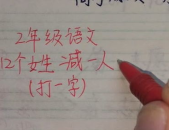 2年级语文
12个女生减一人
(打一字)